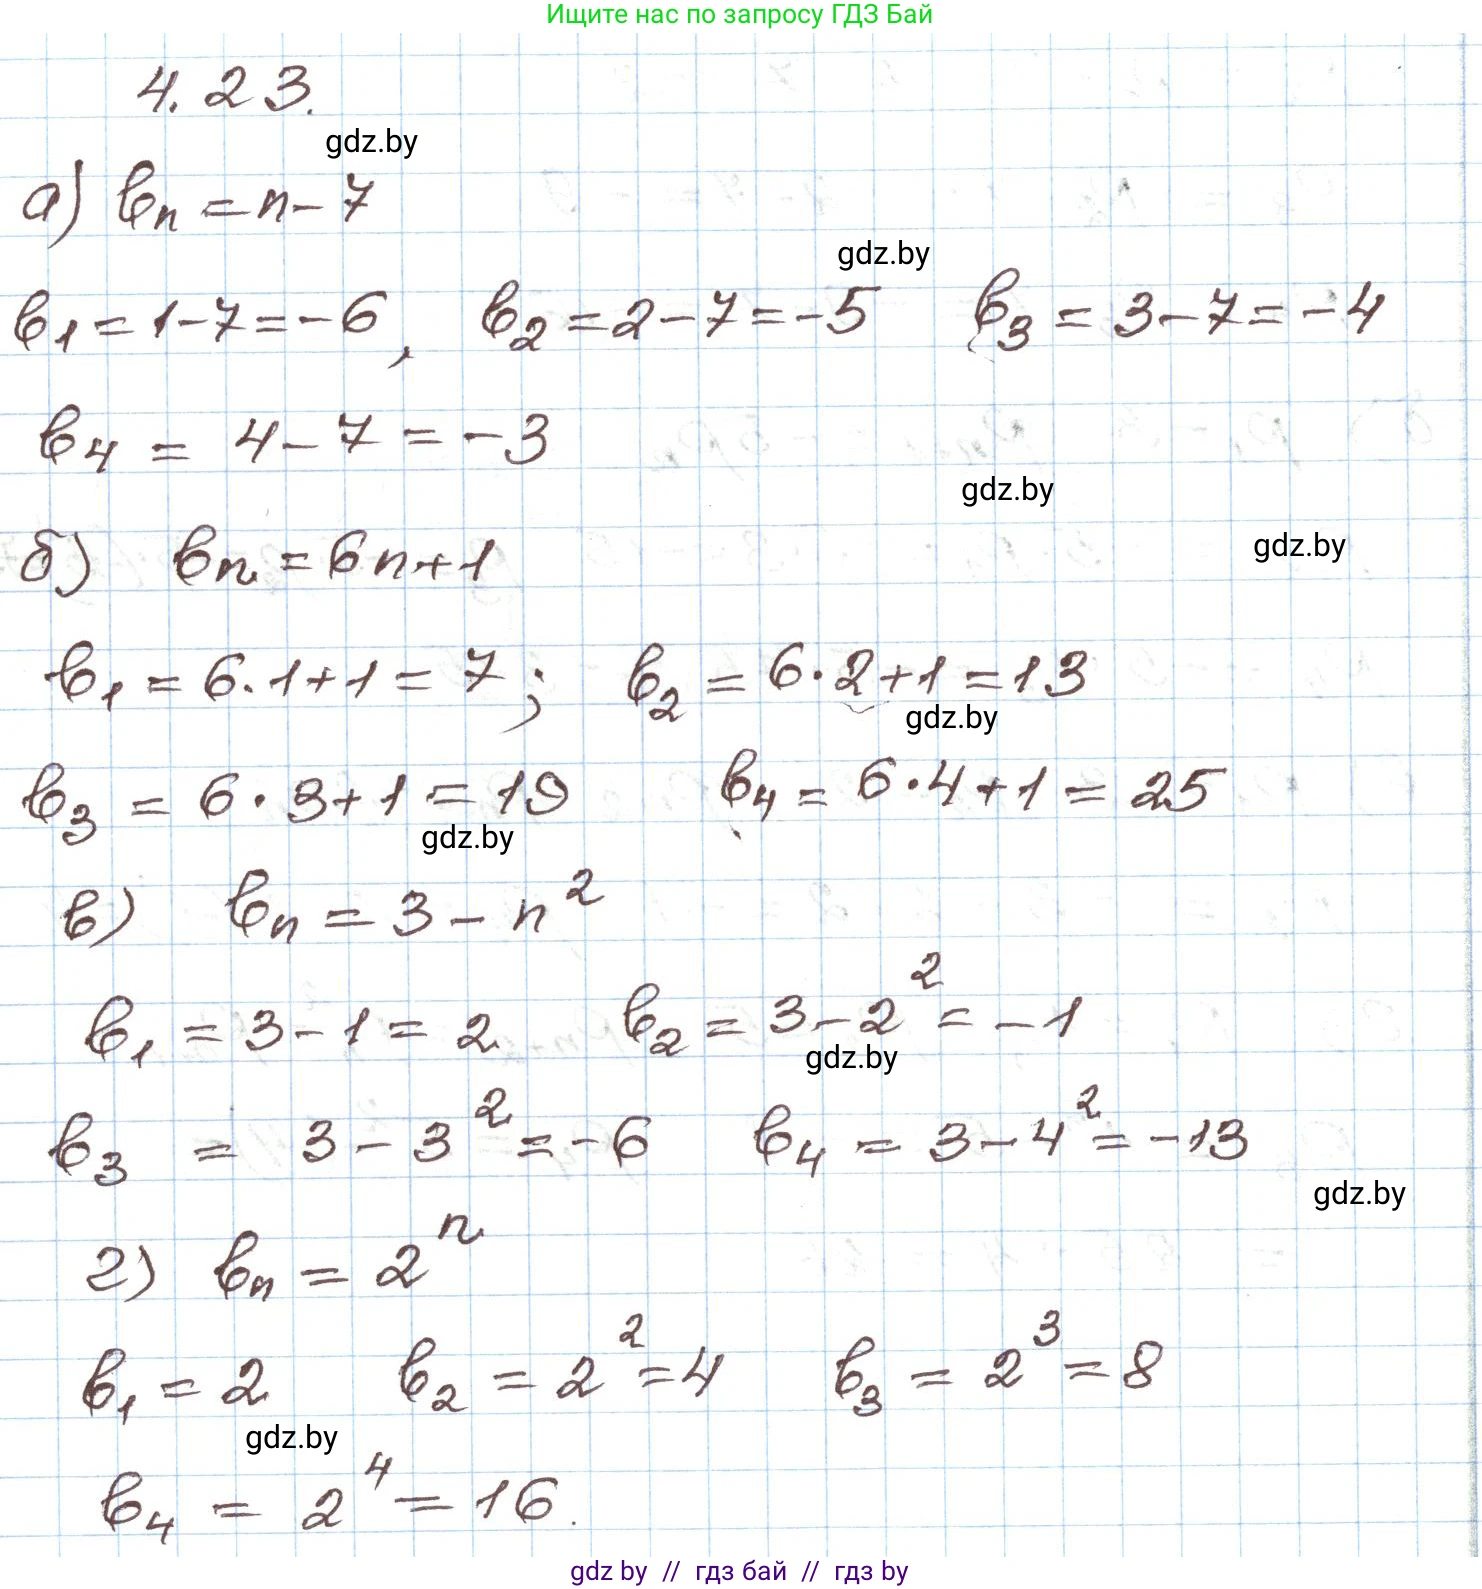 Ищите нас по запросу ГДЗ Бай
4.23.
gdz.by
а) bₙ = n - 7
gdz.by
b₁ = 1 - 7 = -6, b₂ = 2 - 7 = -5 b₃ = 3 - 7 = -4
b₄ = 4 - 7 = -3
gdz.by
gdz.by
б) bₙ = 6n + 1
b₁ = 6·1+1 = 7; b₂ = 6·2+1 = 13
gdz.by
b₃ = 6·3+1 = 19 b₄ = 6·4+1 = 25
gdz.by
в) bₙ = 3 - n²
b₁ = 3 - 1 = 2 b₂ = 3 - 2² = -1
gdz.by
b₃ = 3 - 3² = -6 b₄ = 3 - 4² = -13
gdz.by
г) bₙ = 2ⁿ
b₁ = 2 b₂ = 2² = 4 b₃ = 2³ = 8
gdz.by
b₄ = 2⁴ = 16.
gdz by // гдз бай // гдз by